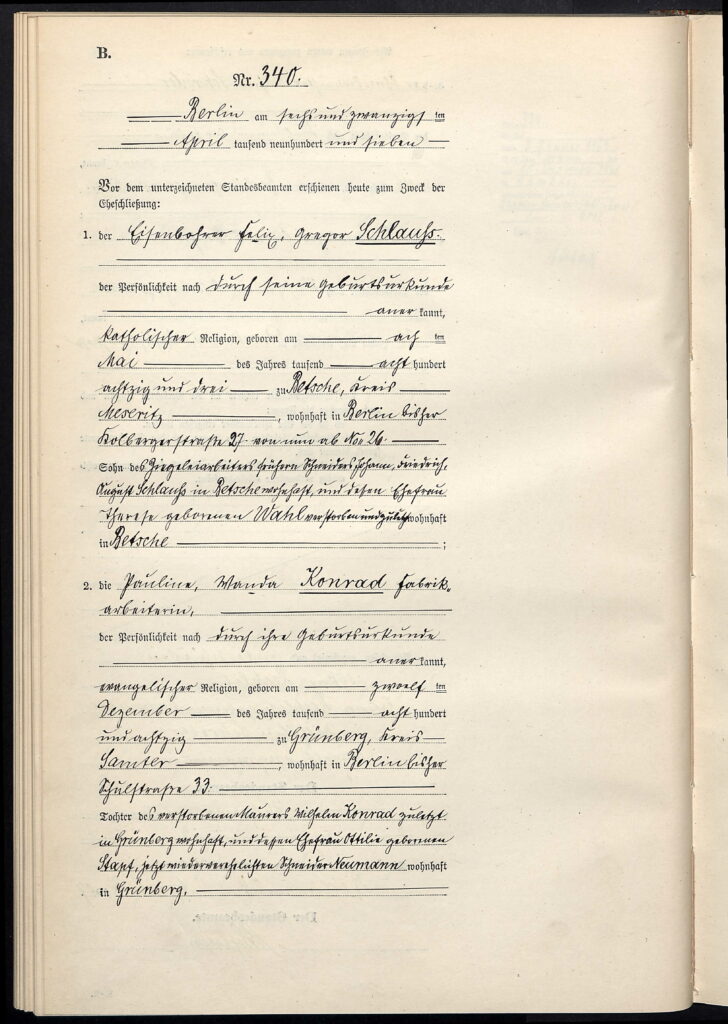 B.
Nr. 340.
Berlin am sechs und zwanzigsten
April tausend neunhundert und sieben
Vor dem unterzeichneten Standesbeamten erschienen heute zum Zweck der
Eheschließung:
1. der Eisenbohrer Felix, Gregor Schlauss.
der Persönlichkeit nach durch seine Geburtsurkunde
aner kannt,
katholischer Religion, geboren am ach ten
Mai des Jahres tausend acht hundert
achtzig und drei zu Betsche, Kreis
Meseritz, wohnhaft in Berlin bisher
Kolbergerstraße 27. von nun ab No 26.
Sohn des Ziegeleiarbeiters früheren Schneiders Johann, Friedrich,
August Schlauss in Betsche wohnhaft, und dessen Ehefrau
Therese geborenen Wahl verstorben und zuletzt wohnhaft
in Betsche ;
2. die Pauline, Wanda Konrad Fabrik-
arbeiterin,
der Persönlichkeit nach durch ihre Geburtsurkunde
aner kannt,
evangelischer Religion, geboren am zwoelf ten
Dezember des Jahres tausend acht hundert
und achtzig zu Grünberg, Kreis
Samter, wohnhaft in Berlin bisher
Schulstraße 33.
Tochter des verstorbenen Maurers Wilhelm Konrad zuletzt
in Grünberg wohnhaft, und dessen Ehefrau Ottilie geborenen
Stapf, jetzt wiederverehelichten Schneider Neumann wohnhaft
in Grünberg,